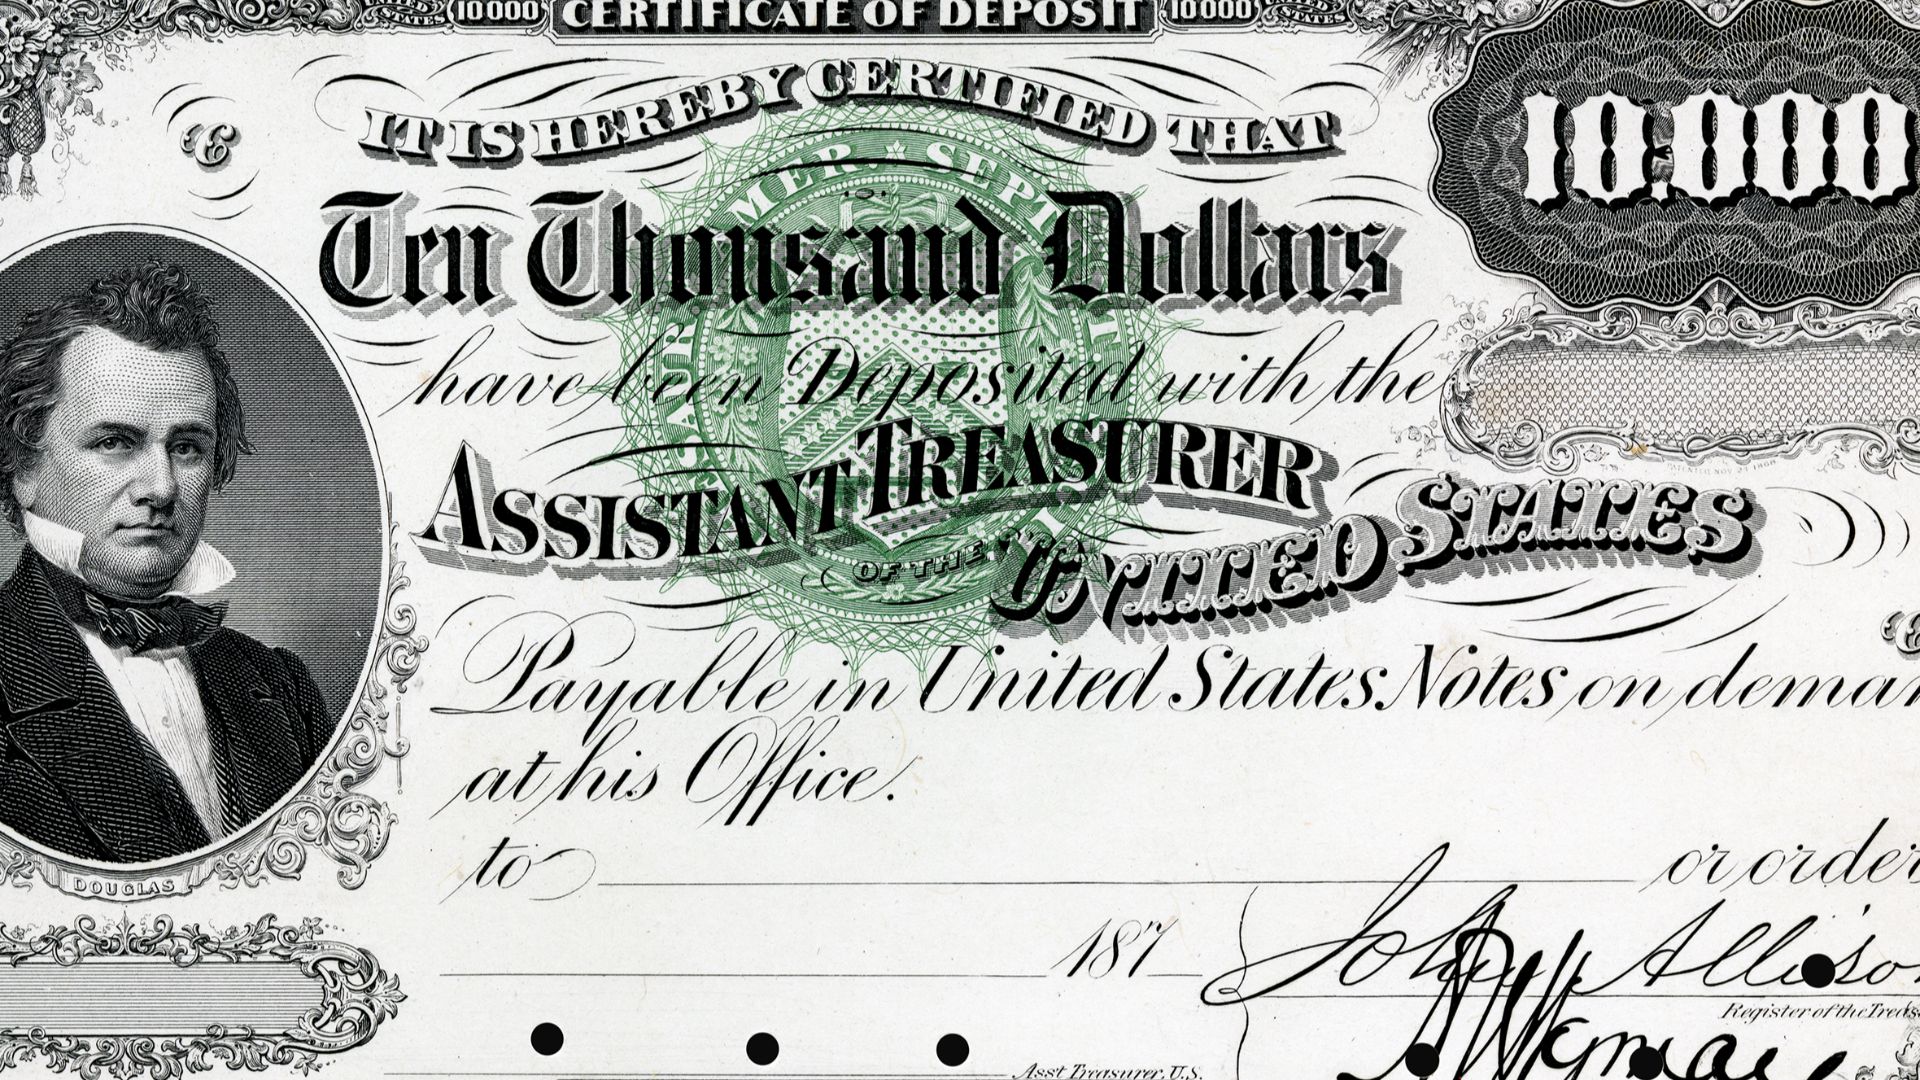 UNITED STATES 10000 CERTIFICATE OF DEPOSIT 10000 UNITED STATES
IT IS HEREBY CERTIFIED THAT
10.000
E
Ten Thousand Dollars
have been Deposited with the
ASSISTANT TREASURER
PATENTED NOV 24 1868
OF THE UNITED STATES
E
Payable in United States Notes on deman
at his Office.
to or order
DOUGLAS
187 John Allison
Register of the Treas
Wyman
Asst Treasurer, U.S.